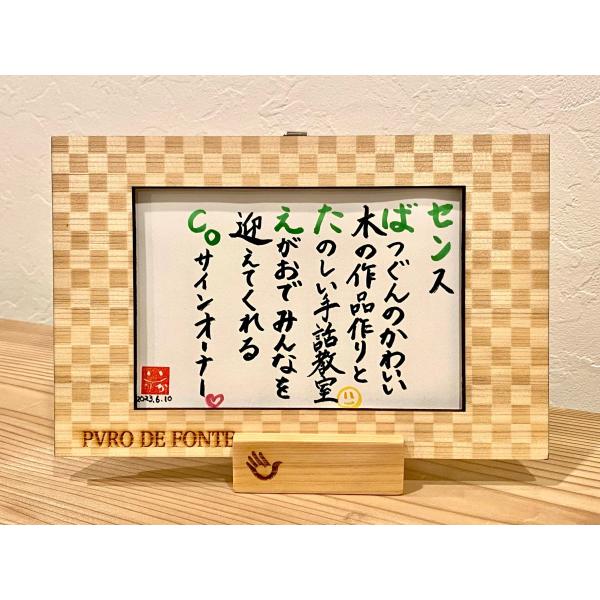 センス
ばつぐんのかわいい
木の作品作りと
たのしい手話教室
えがおでみんなを
迎えてくれる
Coサインオーナー
2023.6.10
PVRO DE FONTE